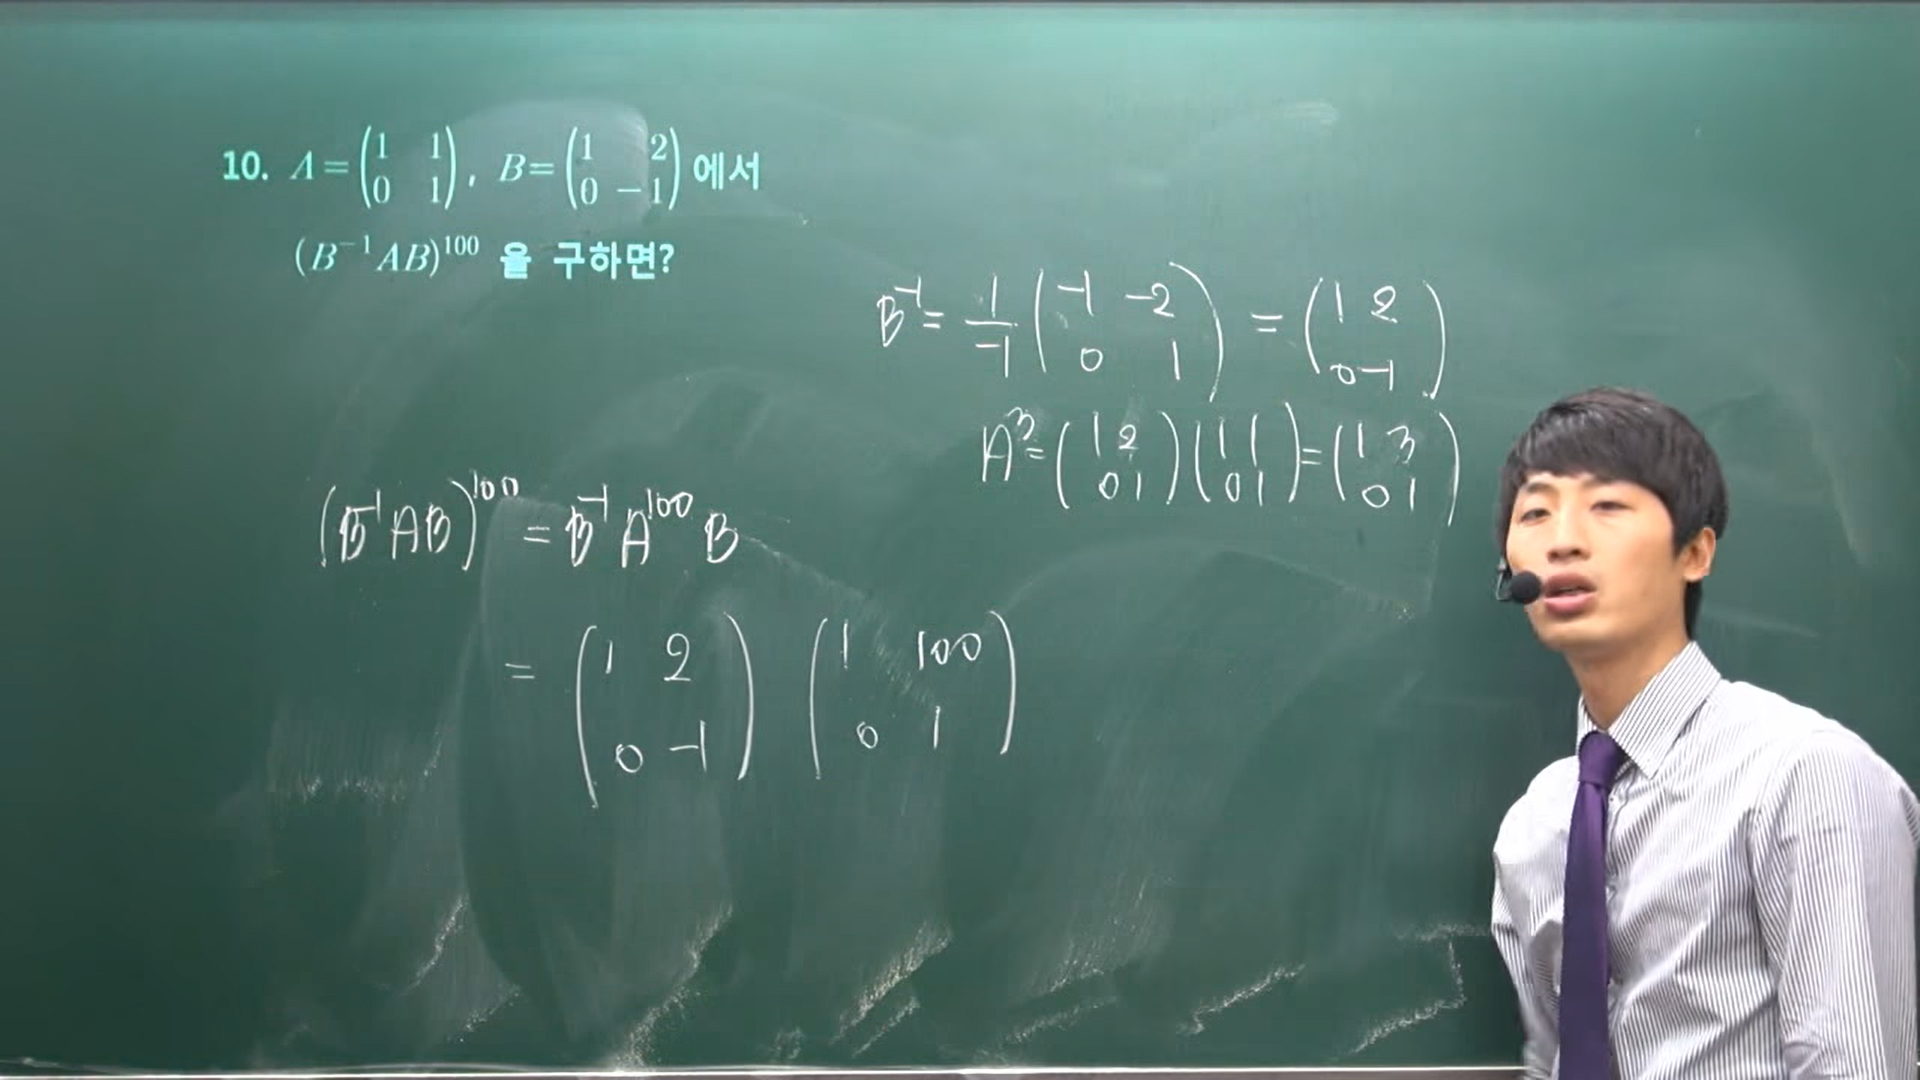 10. A = (1 1 0 1), B = (1 2 0 -1) 에서
(B⁻¹AB)¹⁰⁰ 을 구하면?
B⁻¹ = 1/-1 (-1 -2 0 1) = (1 2 0 -1)
A³ = (1 2 0 1)(1 1 0 1) = (1 3 0 1)
(B⁻¹AB)¹⁰⁰ = B⁻¹A¹⁰⁰B
= (1 2 0 -1) (1 100 0 1)